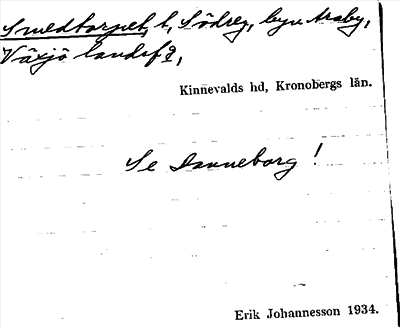 Smedtorpet, t, Södreg, byn Araby,
Växjö landsf?,
Kinnevalds hd, Kronobergs län.
Se Danneborg!
Erik Johannesson 1934.